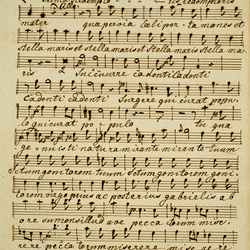 mater quae pervia caeli porta manes et
Stella maris et stella maris et Stella maris Stella ma
ris Succurre cadenti cadenti
Cadenti cadenti Surgere qui curat popu
lo qui curat populo tu quae
ge nuisti natura mirante mirante tuum
Sanctum genitorem tuum Sanctum genitorem geni
torem virgo prius ac posterius gabrielis ab
ore sumens illud ave peccatorum mise
rere peccatorum miserere mise re re